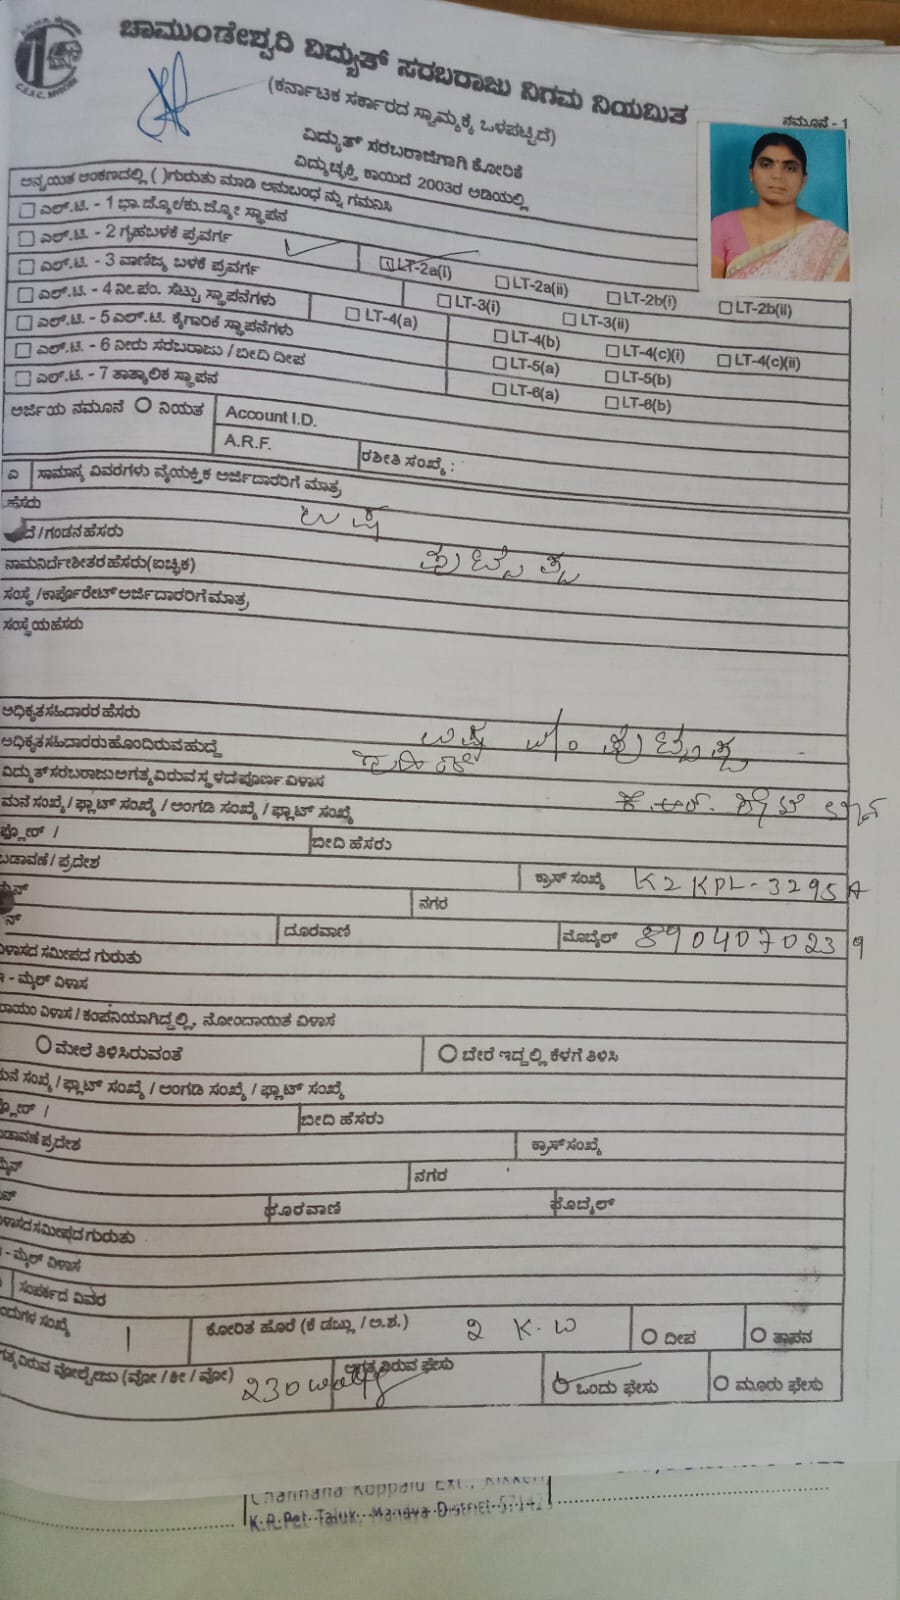 ಚಾಮುಂಡೇಶ್ವರಿ ವಿದ್ಯುತ್ ಸರಬರಾಜು ನಿಗಮ ನಿಯಮಿತ
C.E.S.C. MYSORE
(ಕರ್ನಾಟಕ ಸರ್ಕಾರದ ಸ್ವಾಮ್ಯಕ್ಕೆ ಒಳಪಟ್ಟಿದೆ)
ನಮೂನೆ - 1
ವಿದ್ಯುತ್ ಸರಬರಾಜಿಗಾಗಿ ಕೋರಿಕೆ
ವಿದ್ಯುಚ್ಛಕ್ತಿ ಕಾಯಿದೆ 2003ರ ಅಡಿಯಲ್ಲಿ
ಅನ್ವಯಿತ ಅಂಕಣದಲ್ಲಿ ( )ಗುರುತು ಮಾಡಿ ಅನುಬಂಧ ನ್ನು ಗಮನಿಸಿ
ಎಲ್.ಟಿ. - 1 ಭಾ.ಜ್ಯೋ/ಕು.ಜ್ಯೋ ಸ್ಥಾಪನ
ಎಲ್.ಟಿ. - 2 ಗೃಹಬಳಕೆ ಪ್ರವರ್ಗ LT-2a(i) LT-2a(ii) LT-2b(i) LT-2b(ii)
ಎಲ್.ಟಿ. - 3 ವಾಣಿಜ್ಯ ಬಳಕೆ ಪ್ರವರ್ಗ LT-3(i) LT-3(ii)
ಎಲ್.ಟಿ. - 4 ನೀ.ಪಂ. ಸೆಟ್ಟು ಸ್ಥಾಪನೆಗಳು LT-4(a) LT-4(b) LT-4(c)(i) LT-4(c)(ii)
ಎಲ್.ಟಿ. - 5 ಎಲ್.ಟಿ. ಕೈಗಾರಿಕೆ ಸ್ಥಾಪನೆಗಳು LT-5(a) LT-5(b)
ಎಲ್.ಟಿ. - 6 ನೀರು ಸರಬರಾಜು / ಬೀದಿ ದೀಪ LT-6(a) LT-6(b)
ಎಲ್.ಟಿ. - 7 ತಾತ್ಕಾಲಿಕ ಸ್ಥಾಪನ
ಅರ್ಜಿಯ ನಮೂನೆ ನಿಯತ Account I.D.
A.R.F. ರಶೀತಿ ಸಂಖ್ಯೆ :
ಎ ಸಾಮಾನ್ಯ ವಿವರಗಳು ವೈಯಕ್ತಿಕ ಅರ್ಜಿದಾರರಿಗೆ ಮಾತ್ರ
ಹೆಸರು ಉಷ
ದೆ / ಗಂಡನ ಹೆಸರು
ನಾಮನಿರ್ದೇಶಿತರ ಹೆಸರು(ಐಚ್ಛಿಕ)
ಸಂಸ್ಥೆ /ಕಾರ್ಪೊರೇಟ್ ಅರ್ಜಿದಾರರಿಗೆ ಮಾತ್ರ
ಸಂಸ್ಥೆಯ ಹೆಸರು
ಅಧಿಕೃತ ಸಹಿದಾರರ ಹೆಸರು
ಅಧಿಕೃತ ಸಹಿದಾರರು ಹೊಂದಿರುವ ಹುದ್ದೆ ಉಷ
ವಿದ್ಯುತ್ ಸರಬರಾಜು ಅಗತ್ಯವಿರುವ ಸ್ಥಳದ ಪೂರ್ಣ ವಿಳಾಸ
ಮನೆ ಸಂಖ್ಯೆ / ಫ್ಲಾಟ್ ಸಂಖ್ಯೆ / ಅಂಗಡಿ ಸಂಖ್ಯೆ / ಫ್ಲಾಟ್ ಸಂಖ್ಯೆ ಕೆ.ಆರ್.
ಫ್ಲೋರ್ / ಬೀದಿ ಹೆಸರು
ಬಡಾವಣೆ / ಪ್ರದೇಶ ಕ್ರಾಸ್ ಸಂಖ್ಯೆ K2KPL-3295A
ನಗರ
ದೂರವಾಣಿ ಮೊಬೈಲ್ 8904070239
ವಿಳಾಸದ ಸಮೀಪದ ಗುರುತು
- ಮೈಲ್ ವಿಳಾಸ
ರಾಯಂ ವಿಳಾಸ / ಕಂಪನಿಯಾಗಿದ್ದಲ್ಲಿ, ನೋಂದಾಯಿತ ವಿಳಾಸ
ಮೇಲೆ ತಿಳಿಸಿರುವಂತೆ ಬೇರೆ ಇದ್ದಲ್ಲಿ ಕೆಳಗೆ ತಿಳಿಸಿ
ಮನೆ ಸಂಖ್ಯೆ / ಫ್ಲಾಟ್ ಸಂಖ್ಯೆ / ಅಂಗಡಿ ಸಂಖ್ಯೆ / ಫ್ಲಾಟ್ ಸಂಖ್ಯೆ
ಫ್ಲೋರ್ / ಬೀದಿ ಹೆಸರು
ಬಡಾವಣೆ ಪ್ರದೇಶ ಕ್ರಾಸ್ ಸಂಖ್ಯೆ
ನಗರ
ದೂರವಾಣಿ ಮೊಬೈಲ್
ವಿಳಾಸದ ಸಮೀಪದ ಗುರುತು
- ಮೈಲ್ ವಿಳಾಸ
ಸಂಪರ್ಕದ ವಿವರ
ಸಂಖ್ಯೆ 1 ಕೋರಿತ ಹೊರೆ (ಕೆ ಡಬ್ಲ್ಯು / ಅ.ಶ.) 2 K.W ದೀಪ ತಾಪನ
ಅಗತ್ಯವಿರುವ ವೋಲ್ಟೇಜು (ವೋ / ಕೀ / ವೋ) 230 ಅಗತ್ಯವಿರುವ ಫೇಸು ಒಂದು ಫೇಸು ಮೂರು ಫೇಸು
Channana Koppalu Ext., Kikkeri
K.R.Pet Taluk, Mandya District-57142